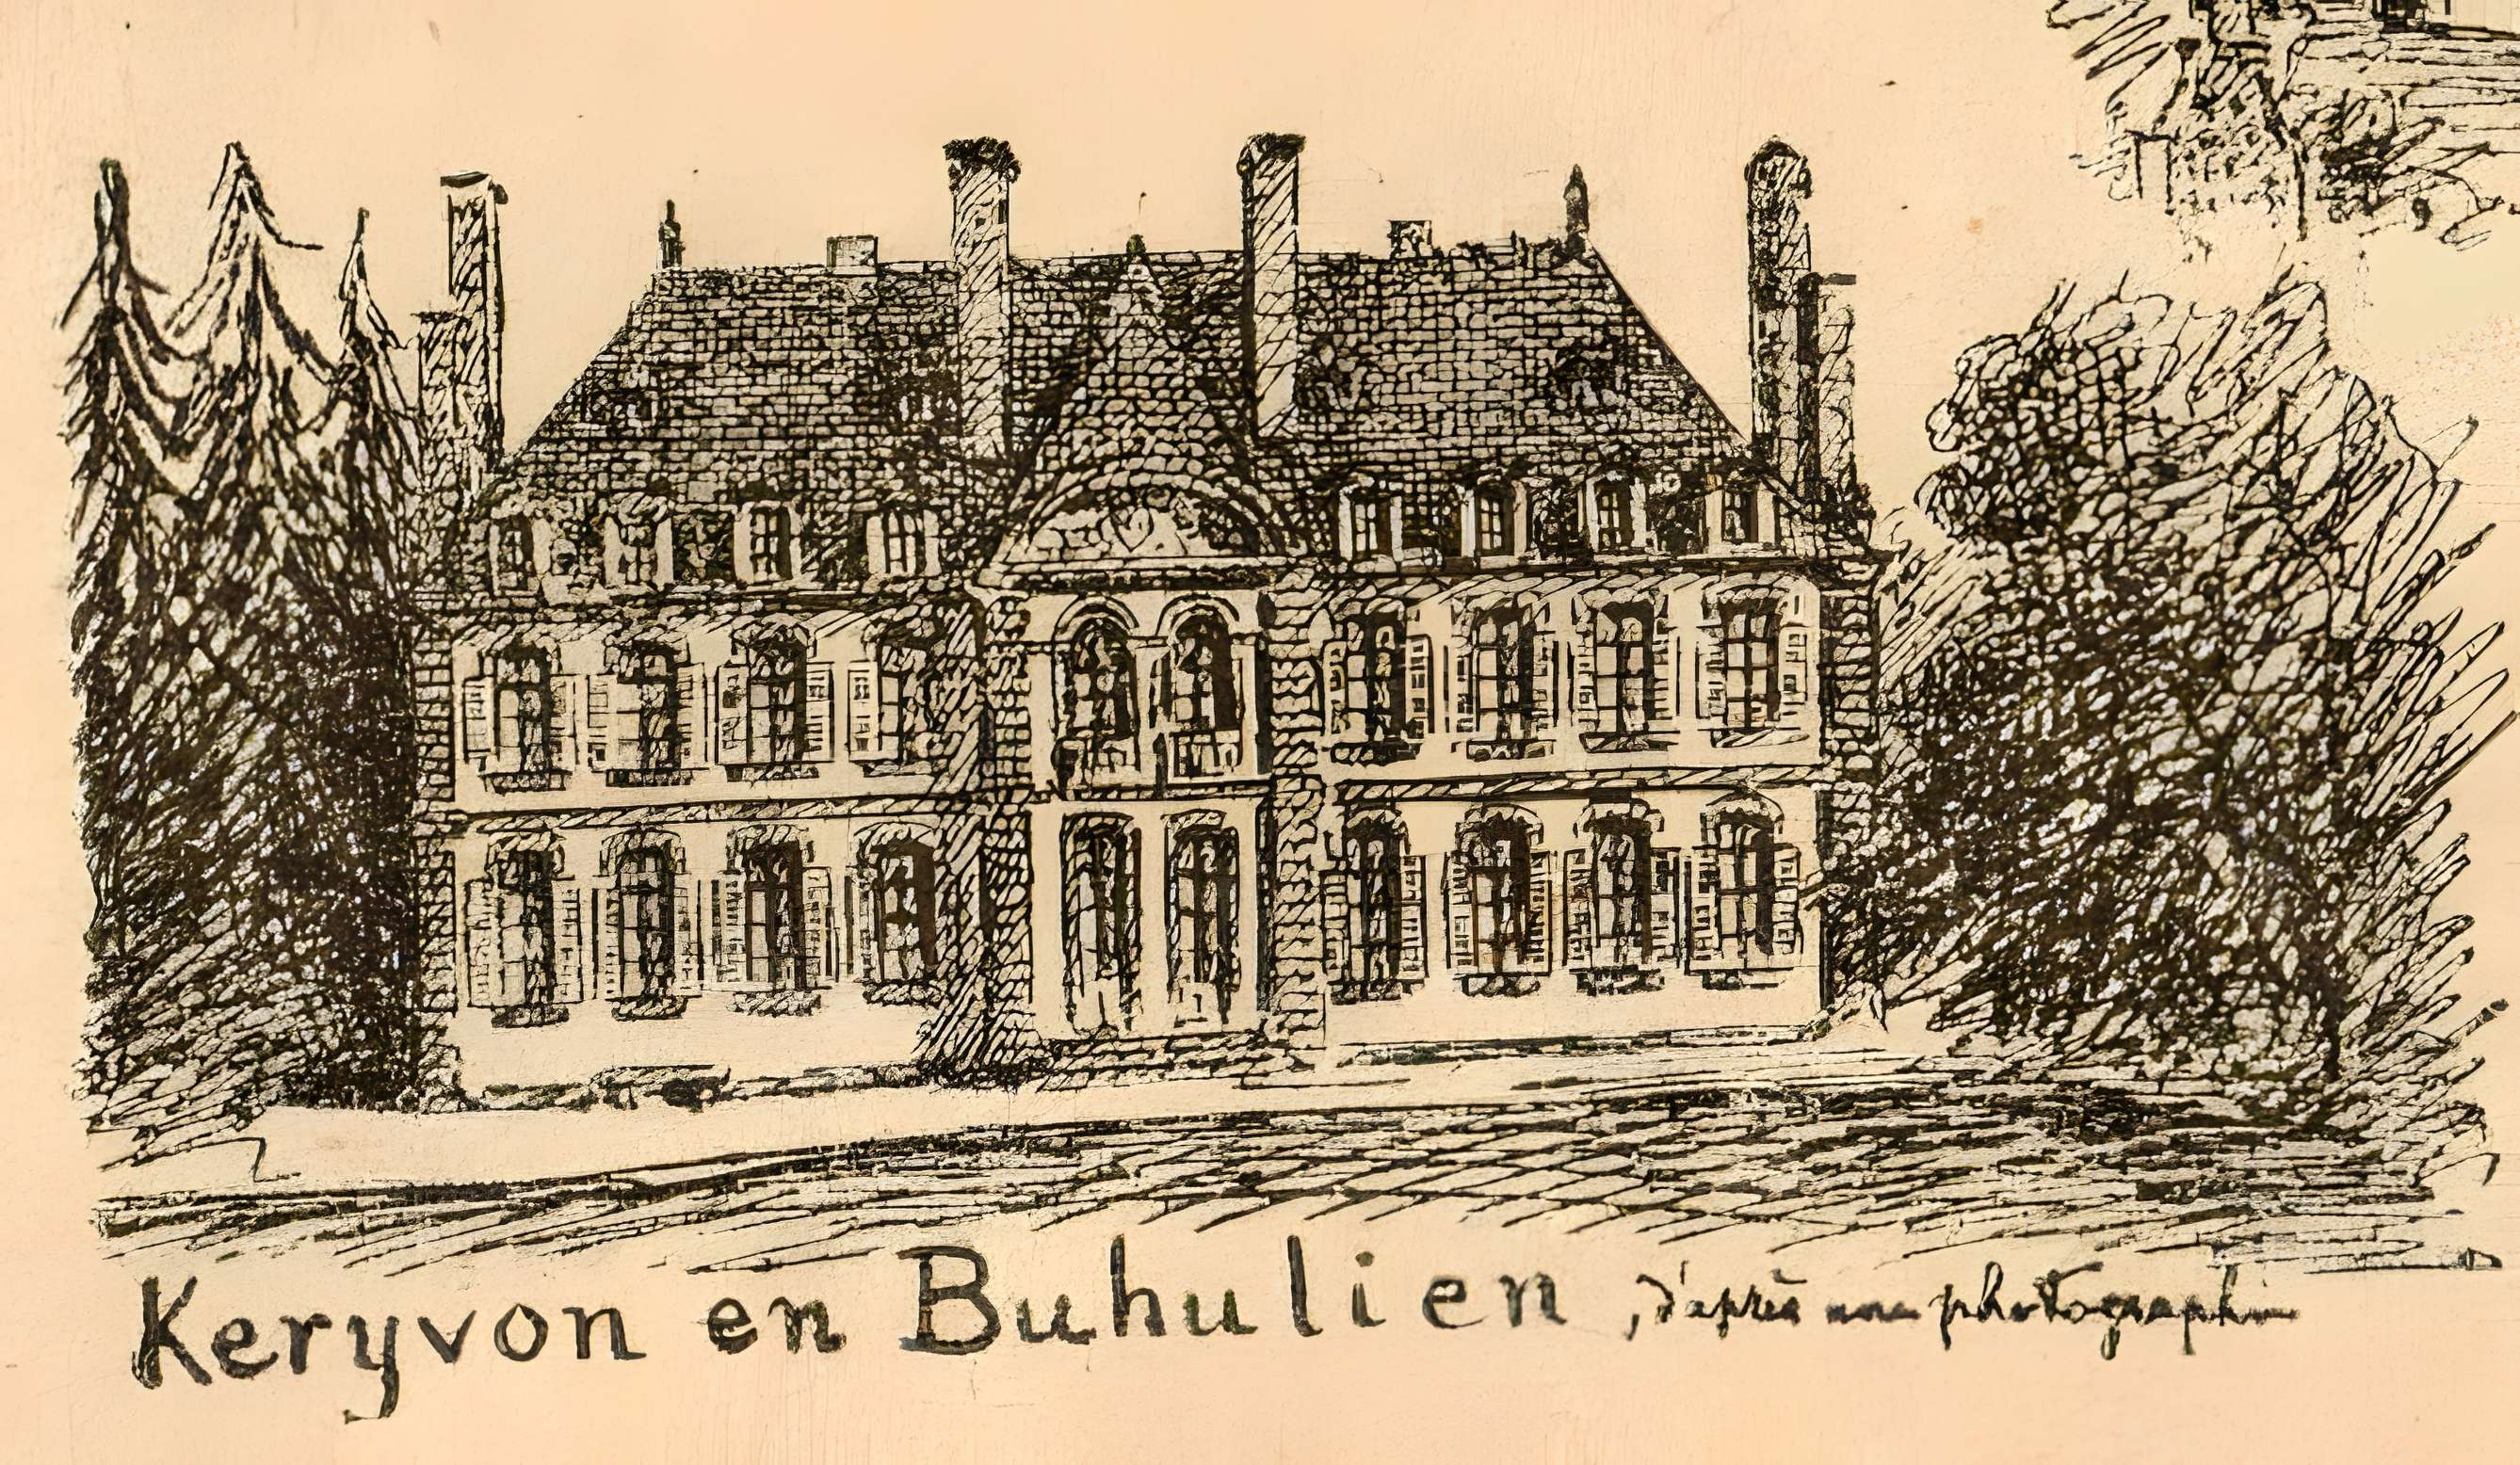 Keryvon en Buhulien, d'après une photographie